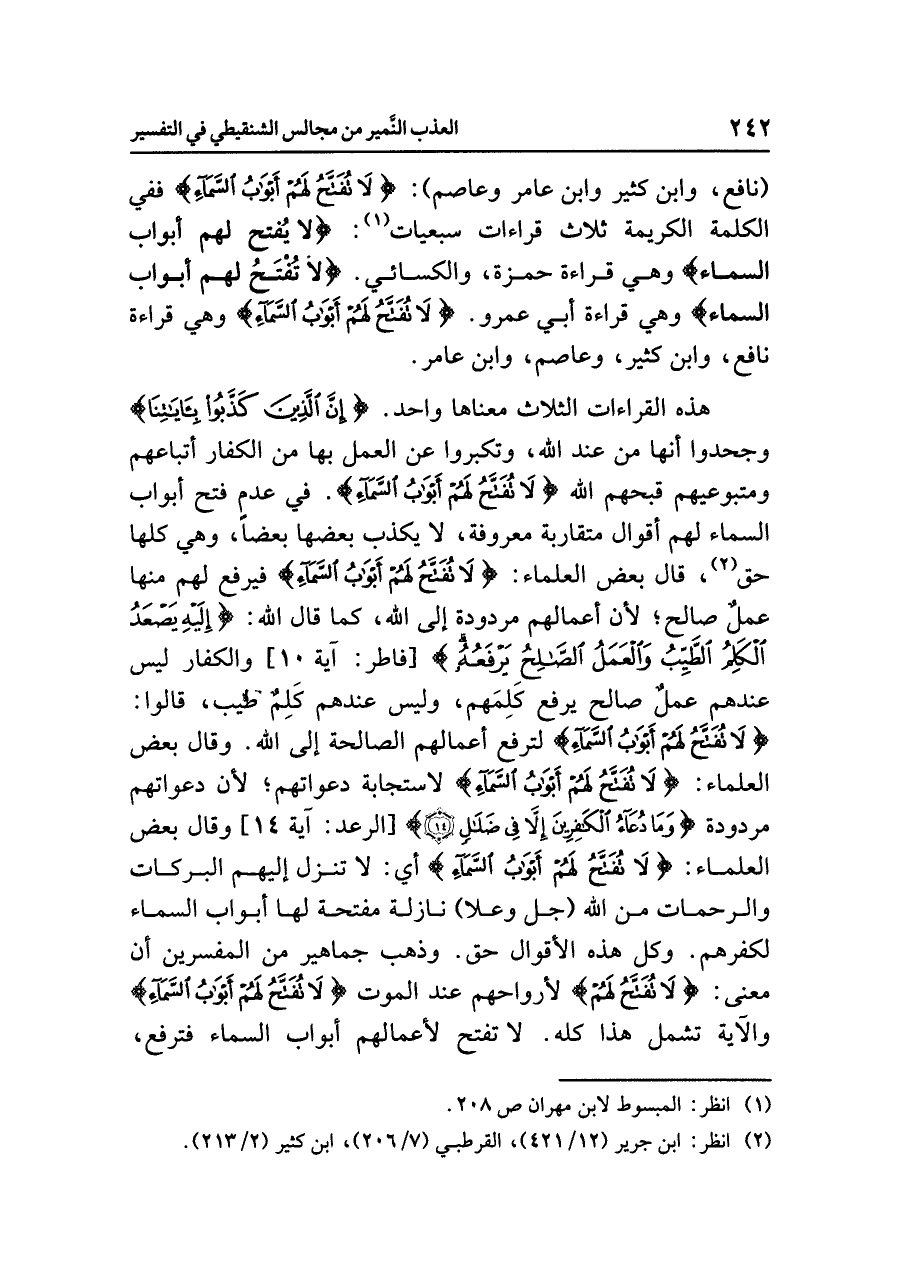 ٢٤٢ العذب النَّمير من مجالس الشنقيطي في التفسير
(نافع، وابن كثير وابن عامر وعاصم): ﴿لَا تُفَتَّحُ لَهُمْ أَبْوَٰبُ ٱلسَّمَآءِ﴾ ففي
الكلمة الكريمة ثلاث قراءات سبعيات(١): ﴿لا يُفتح لهم أبواب
السماء﴾ وهي قراءة حمزة، والكسائي. ﴿لاَ تُفْتَحُ لهم أبواب
السماء﴾ وهي قراءة أبي عمرو. ﴿لَا تُفَتَّحُ لَهُمْ أَبْوَٰبُ ٱلسَّمَآءِ﴾ وهي قراءة
نافع، وابن كثير، وعاصم، وابن عامر.
هذه القراءات الثلاث معناها واحد. ﴿إِنَّ ٱلَّذِينَ كَذَّبُوا۟ بِـَٔايَـٰتِنَا﴾
وجحدوا أنها من عند الله، وتكبروا عن العمل بها من الكفار أتباعهم
ومتبوعيهم قبحهم الله ﴿لَا تُفَتَّحُ لَهُمْ أَبْوَٰبُ ٱلسَّمَآءِ﴾. في عدم فتح أبواب
السماء لهم أقوال متقاربة معروفة، لا يكذب بعضها بعضاً، وهي كلها
حق(٢)، قال بعض العلماء: ﴿لَا تُفَتَّحُ لَهُمْ أَبْوَٰبُ ٱلسَّمَآءِ﴾ فيرفع لهم منها
عملٌ صالح؛ لأن أعمالهم مردودة إلى الله، كما قال الله: ﴿إِلَيْهِ يَصْعَدُ
ٱلْكَلِمُ ٱلطَّيِّبُ وَٱلْعَمَلُ ٱلصَّـٰلِحُ يَرْفَعُهُۥ﴾ [فاطر: آية ١٠] والكفار ليس
عندهم عملٌ صالح يرفع كَلِمَهم، وليس عندهم كَلِمٌ طيب، قالوا:
﴿لَا تُفَتَّحُ لَهُمْ أَبْوَٰبُ ٱلسَّمَآءِ﴾ لترفع أعمالهم الصالحة إلى الله. وقال بعض
العلماء: ﴿لَا تُفَتَّحُ لَهُمْ أَبْوَٰبُ ٱلسَّمَآءِ﴾ لاستجابة دعواتهم؛ لأن دعواتهم
مردودة ﴿وَمَا دُعَآءُ ٱلْكَـٰفِرِينَ إِلَّا فِى ضَلَـٰلٍ ١٤﴾ [الرعد: آية ١٤] وقال بعض
العلماء: ﴿لَا تُفَتَّحُ لَهُمْ أَبْوَٰبُ ٱلسَّمَآءِ﴾ أي: لا تنزل إليهم البركات
والرحمات من الله (جل وعلا) نازلة مفتحة لها أبواب السماء
لكفرهم. وكل هذه الأقوال حق. وذهب جماهير من المفسرين أن
معنى: ﴿لَا تُفَتَّحُ لَهُمْ﴾ لأرواحهم عند الموت ﴿لَا تُفَتَّحُ لَهُمْ أَبْوَٰبُ ٱلسَّمَآءِ﴾
والآية تشمل هذا كله. لا تفتح لأعمالهم أبواب السماء فترفع،
(١) انظر: المبسوط لابن مهران ص ٢٠٨.
(٢) انظر: ابن جرير (٤٢١/١٢)، القرطبي (٢٠٦/٧)، ابن كثير (٢١٣/٢).